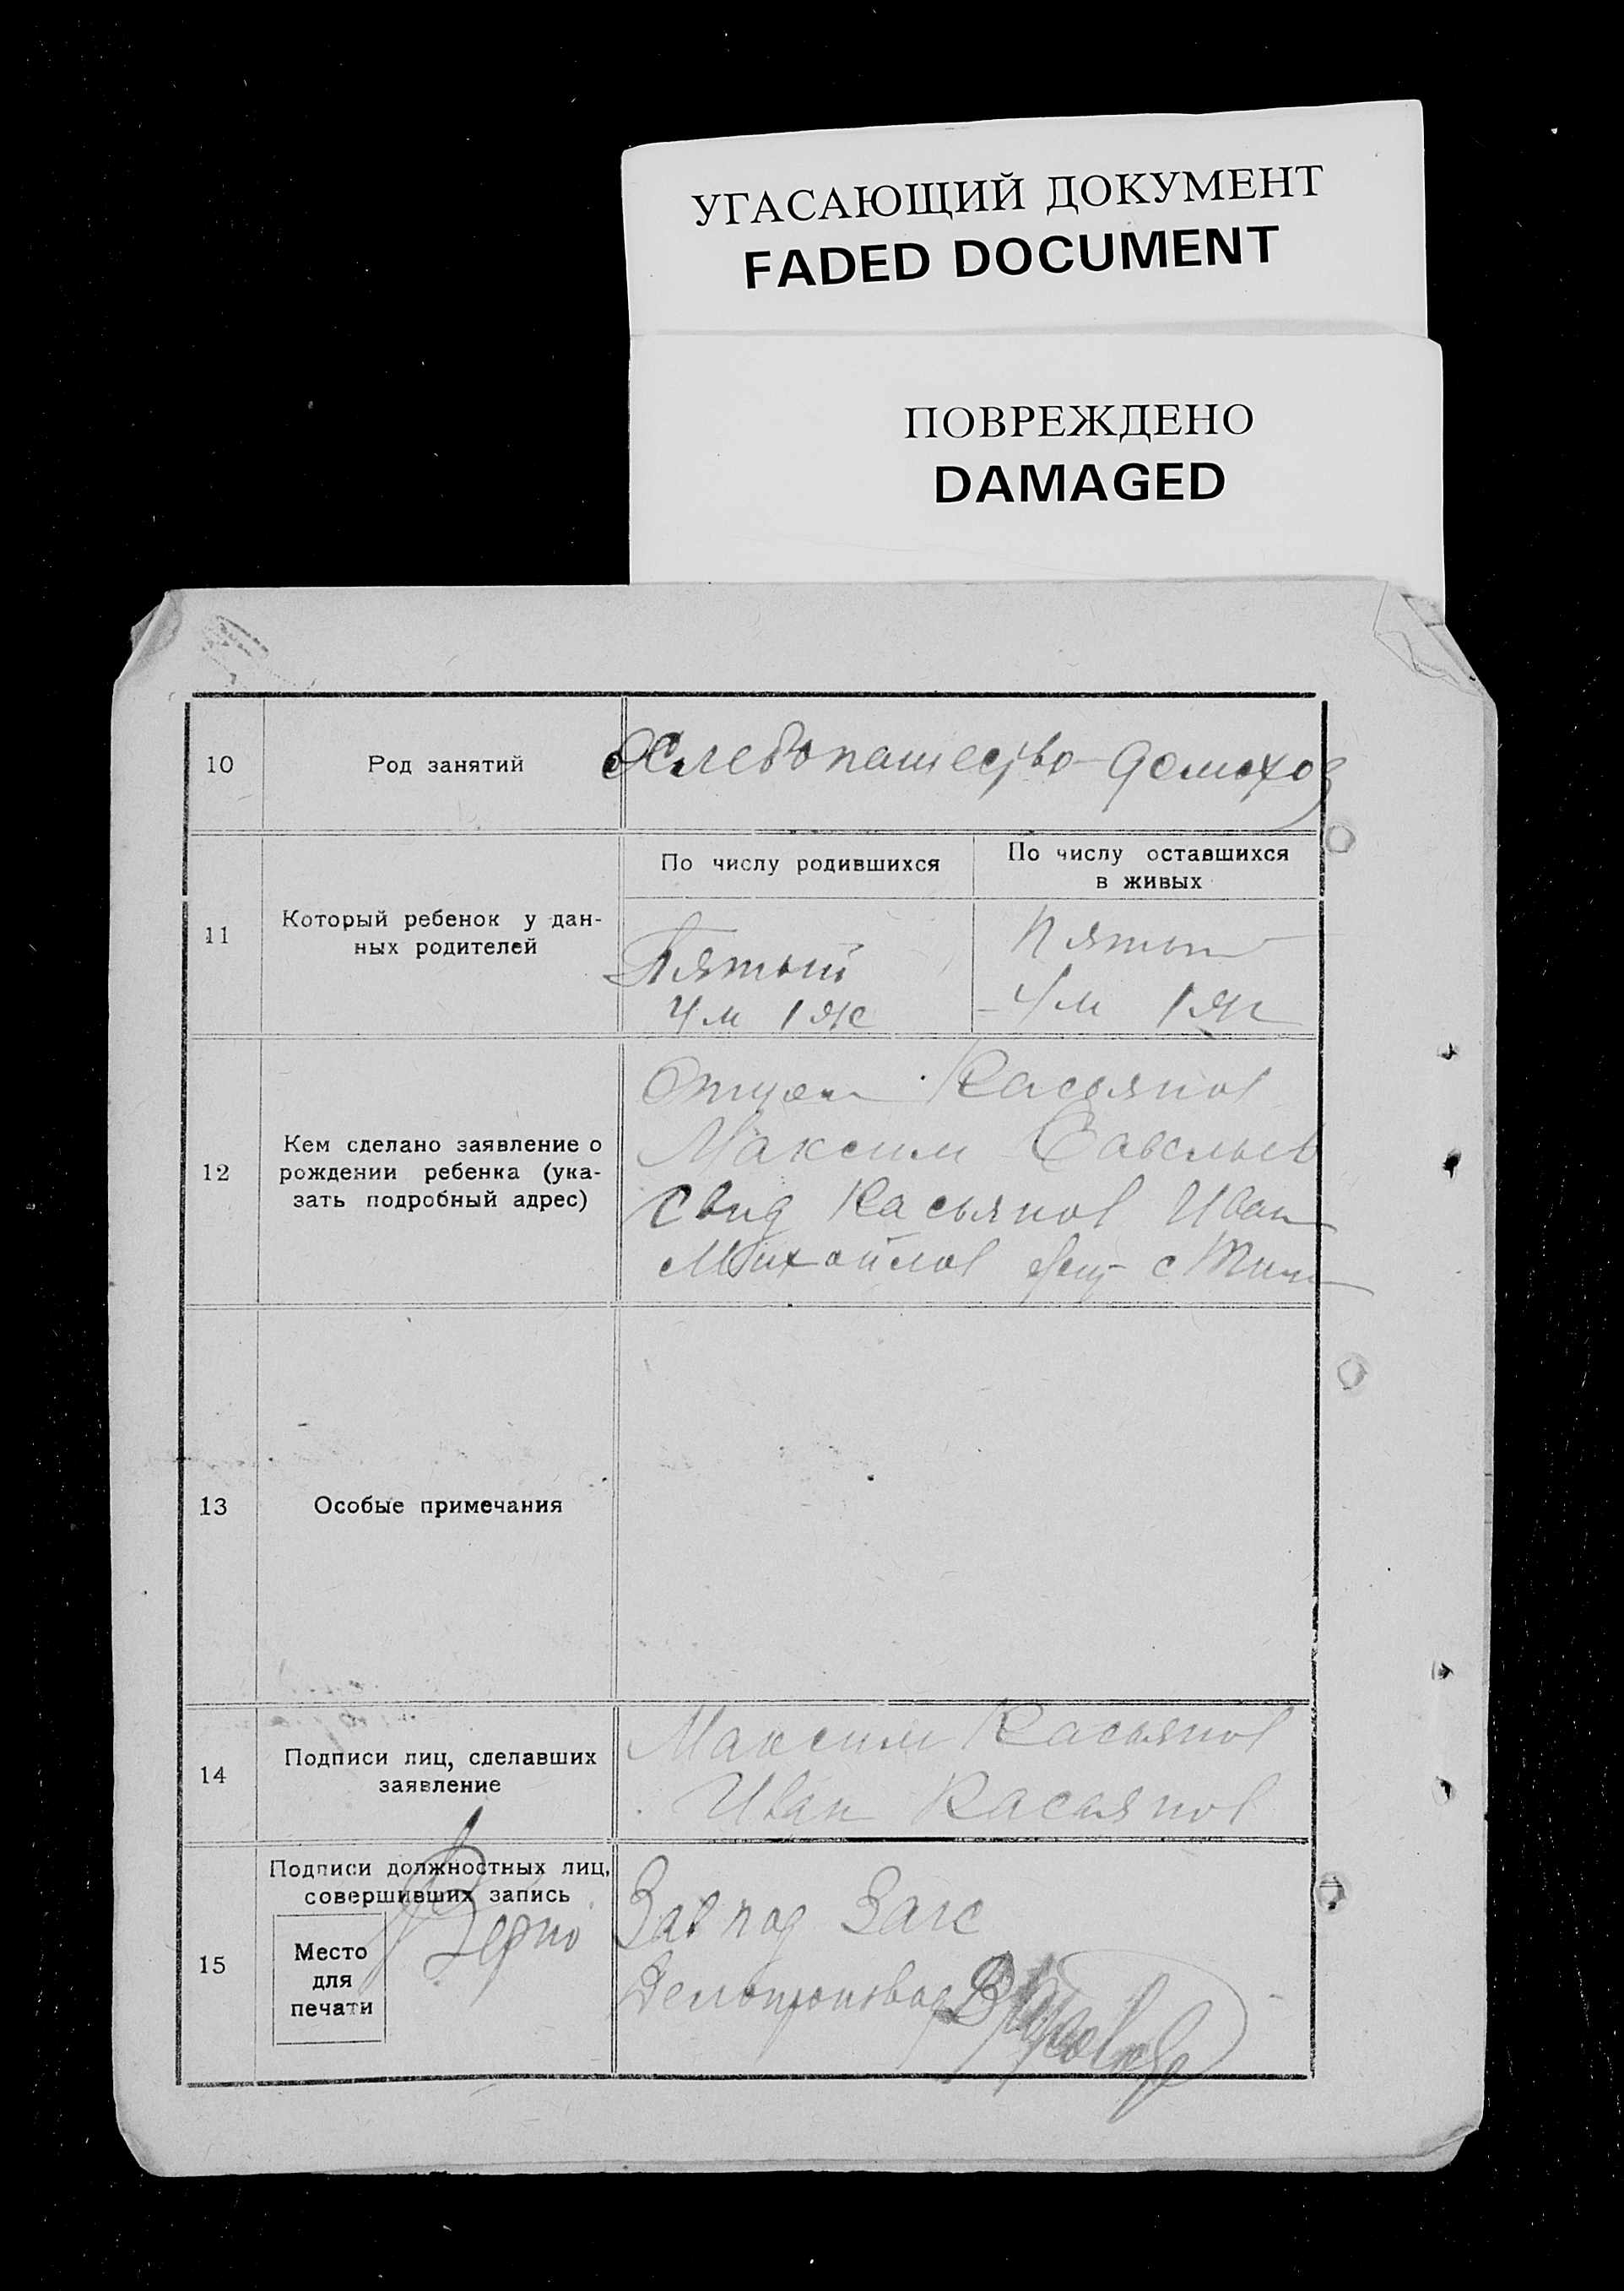 УГАСАЮЩИЙ ДОКУМЕНТ
FADED DOCUMENT
ПОВРЕЖДЕНО
DAMAGED
10
Род занятий
Хлебопашество - домохоз
11
Который ребенок у дан-
ных родителей
По числу родившихся
Пятый
4 м 1 ж
По числу оставшихся
в живых
Пятый
4 м 1 ж
12
Кем сделано заявление о
рождении ребенка (ука-
зать подробный адрес)
Отцом Касьянов
Максим Савельев
Свид Касьянов Иван
Михайлов с
13
Особые примечания
14
Подписи лиц, сделавших
заявление
Максим Касьянов
Иван Касьянов
15
Подписи должностных лиц,
совершивших запись
Место
для
печати
Верно
Зав под Загс
Делопроизвод